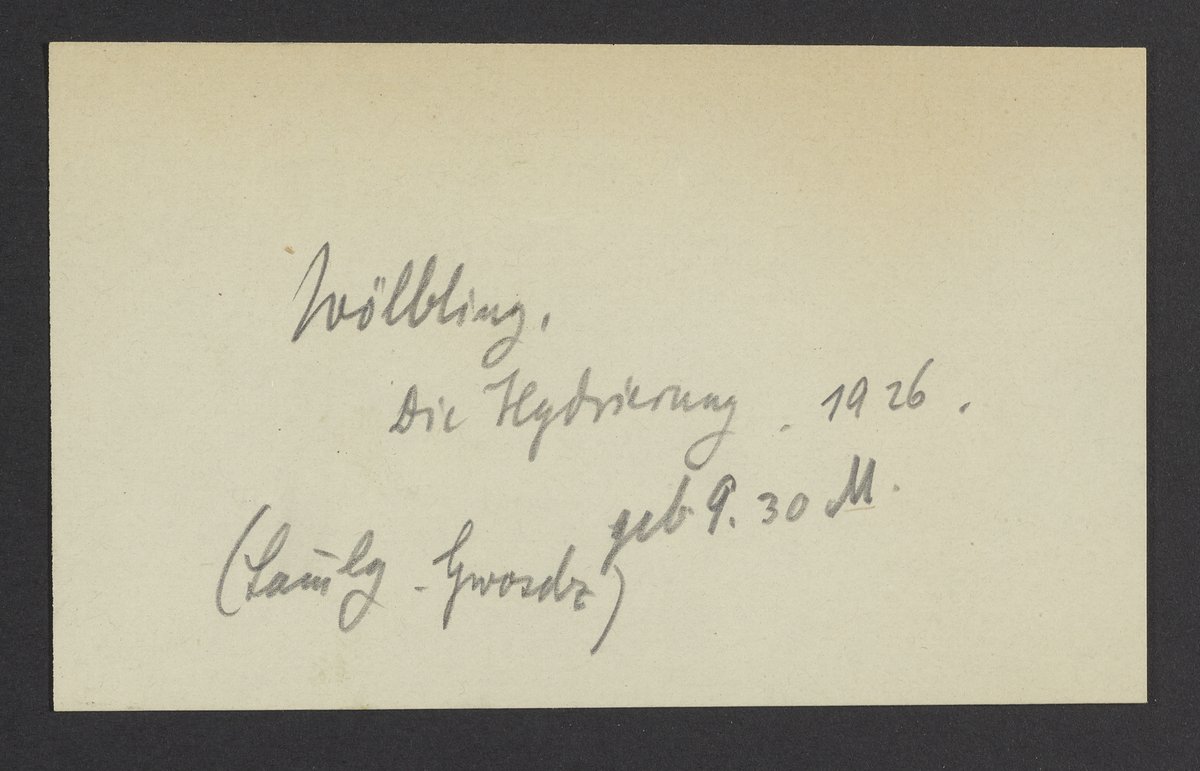 Wölbling.
Die Hydrierung. 1926.
geb 9.30 M.
(Samlg - Gwosdz)